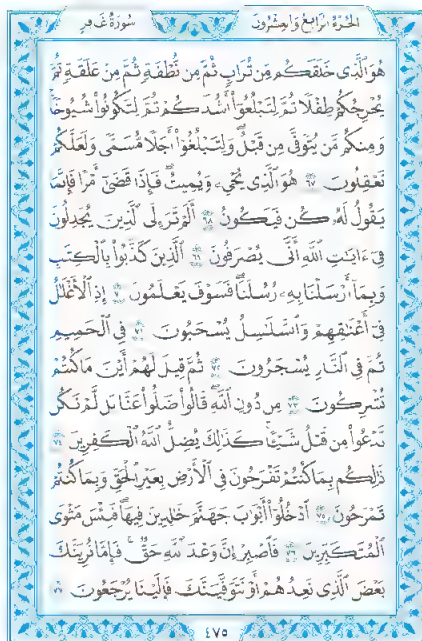 سُورَةُ غَافِرٍ الجُزْءُ الرَّابِعُ وَالعِشْرُونَ
هُوَ ٱلَّذِى خَلَقَكُم مِّن تُرَابٍ ثُمَّ مِن نُّطْفَةٍ ثُمَّ مِنْ عَلَقَةٍ ثُمَّ
يُخْرِجُكُمْ طِفْلًا ثُمَّ لِتَبْلُغُوٓا۟ أَشُدَّكُمْ ثُمَّ لِتَكُونُوا۟ شُيُوخًا
وَمِنكُم مَّن يُتَوَفَّىٰ مِن قَبْلُ وَلِتَبْلُغُوٓا۟ أَجَلًا مُّسَمًّى وَلَعَلَّكُمْ
تَعْقِلُونَ ٦٧ هُوَ ٱلَّذِى يُحْىِۦ وَيُمِيتُ فَإِذَا قَضَىٰٓ أَمْرًا فَإِنَّمَا
يَقُولُ لَهُۥ كُن فَيَكُونُ ٦٨ أَلَمْ تَرَ إِلَى ٱلَّذِينَ يُجَٰدِلُونَ
فِىٓ ءَايَٰتِ ٱللَّهِ أَنَّىٰ يُصْرَفُونَ ٦٩ ٱلَّذِينَ كَذَّبُوا۟ بِٱلْكِتَٰبِ
وَبِمَآ أَرْسَلْنَا بِهِۦ رُسُلَنَا فَسَوْفَ يَعْلَمُونَ ٧٠ إِذِ ٱلْأَغْلَٰلُ
فِىٓ أَعْنَٰقِهِمْ وَٱلسَّلَٰسِلُ يُسْحَبُونَ ٧١ فِى ٱلْحَمِيمِ
ثُمَّ فِى ٱلنَّارِ يُسْجَرُونَ ٧٢ ثُمَّ قِيلَ لَهُمْ أَيْنَ مَا كُنتُمْ
تُشْرِكُونَ ٧٣ مِن دُونِ ٱللَّهِ قَالُوا۟ ضَلُّوا۟ عَنَّا بَل لَّمْ نَكُن
نَّدْعُوا۟ مِن قَبْلُ شَيْـًٔا كَذَٰلِكَ يُضِلُّ ٱللَّهُ ٱلْكَٰفِرِينَ ٧٤
ذَٰلِكُم بِمَا كُنتُمْ تَفْرَحُونَ فِى ٱلْأَرْضِ بِغَيْرِ ٱلْحَقِّ وَبِمَا كُنتُمْ
تَمْرَحُونَ ٧٥ ٱدْخُلُوٓا۟ أَبْوَٰبَ جَهَنَّمَ خَٰلِدِينَ فِيهَا فَبِئْسَ مَثْوَى
ٱلْمُتَكَبِّرِينَ ٧٦ فَٱصْبِرْ إِنَّ وَعْدَ ٱللَّهِ حَقٌّ فَإِمَّا نُرِيَنَّكَ
بَعْضَ ٱلَّذِى نَعِدُهُمْ أَوْ نَتَوَفَّيَنَّكَ فَإِلَيْنَا يُرْجَعُونَ ٧٧
٤٧٥